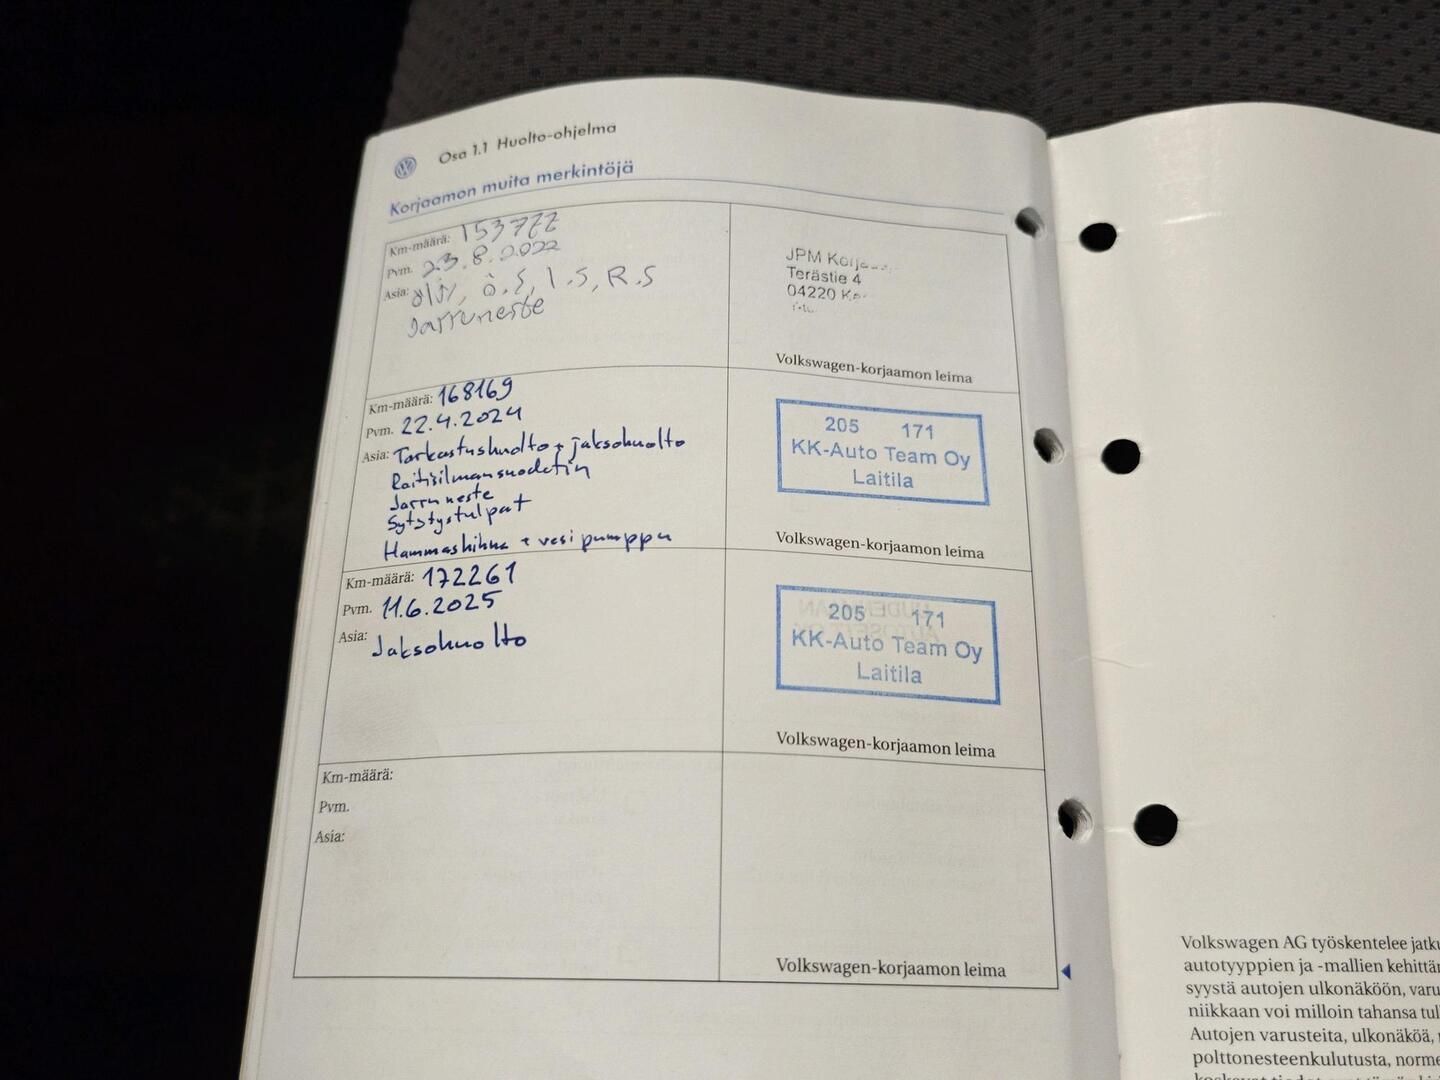 Osa 1.1 Huolto-ohjelma
Korjaamon muita merkintöjä
Km-määrä:
Pvm. 23.8.2022
Asia: Ö.S, I.S, R.S
Jarruneste
JPM
Terästie 4
04220
Volkswagen-korjaamon leima
Km-määrä: 168169
Pvm. 22.4.2024
Asia: Tarkastushuolto + jaksohuolto
Raitisilmansuodatin
Jarruneste
Sytytystulpat
Hammashihna + vesipumppu
205 171
KK-Auto Team Oy
Laitila
Volkswagen-korjaamon leima
Km-määrä: 172261
Pvm. 11.6.2025
Asia: Jaksohuolto
205 171
KK-Auto Team Oy
Laitila
Volkswagen-korjaamon leima
Km-määrä:
Pvm.
Asia:
Volkswagen-korjaamon leima
Volkswagen AG työskentelee
autotyyppien ja -mallien
syystä autojen ulkonäköön,
niikkaan voi milloin tahansa
Autojen varusteita, ulkonäköä,
polttonesteenkulutusta,